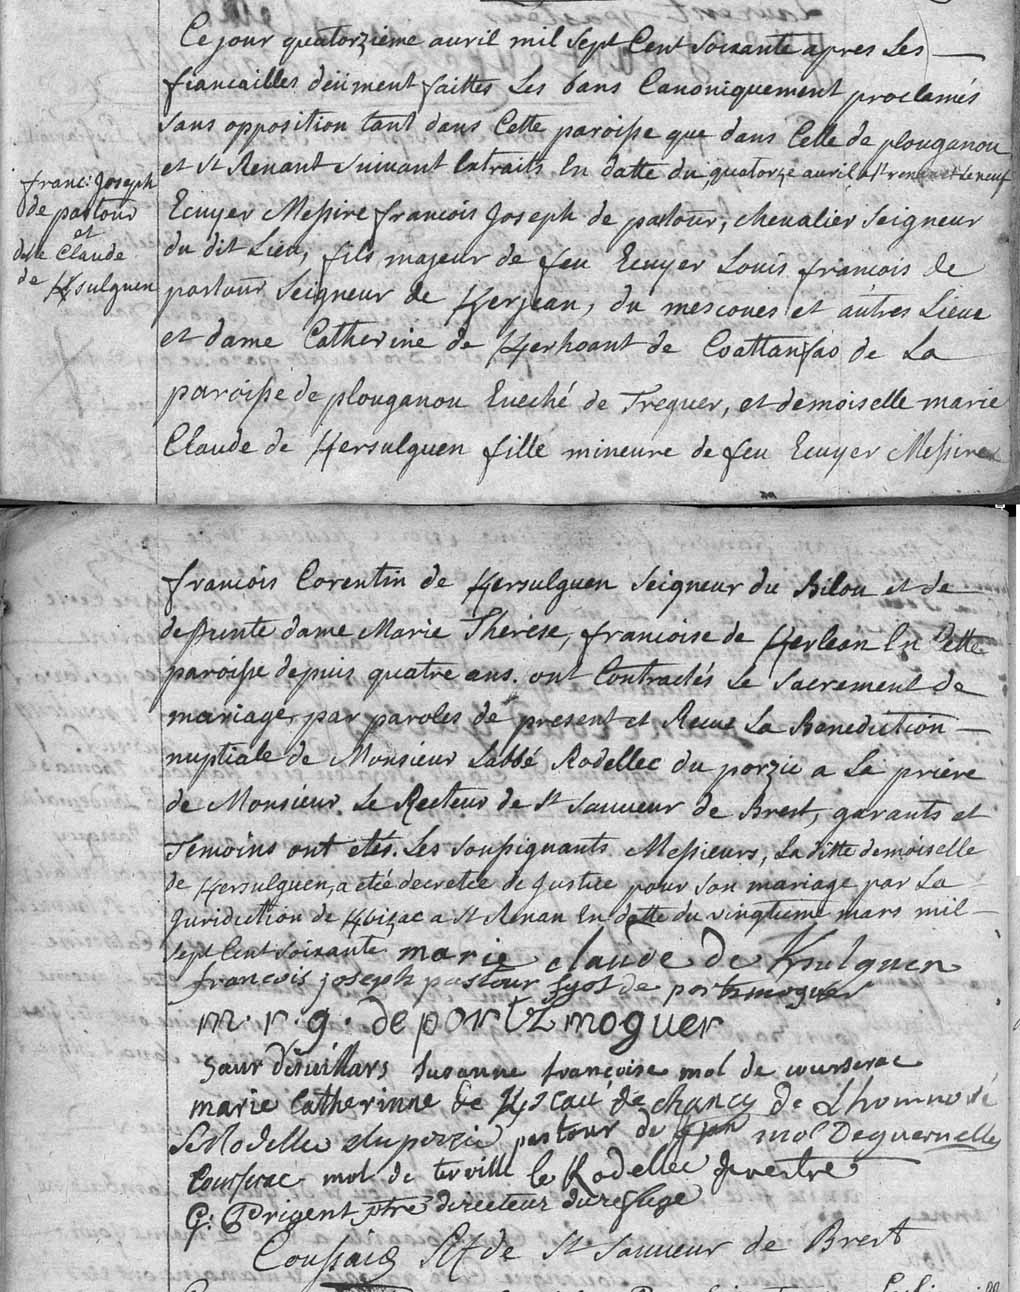 Ce jour quatorzieme avril mil sept Cent soixante apres Les
fiancailles deüment faittes Les bans Canoniquement proclamés
sans opposition tant dans Cette paroisse que dans Celle de plouganou
et st Renant suivant Extraits En datte du quatorze avril et le neuf
Ecuyer Messire francois Joseph de pastour, chevalier seigneur
du dit Lieu, fils majeur de feu Ecuyer Louis francois de
pastour seigneur de Kerjean, du mescoues et autres Lieux
et dame Catherine de Kerhoant de Coattanfao de La
paroisse de plouganou Eveché de Treguer, et demoiselle marie
Claude de Kersulguen fille mineure de feu Ecuyer Messire
franc: Joseph
de pastour
et
dlle Claude
de Ksulguen
francois Corentin de Kersulguen seigneur du Bilou et de
defunte dame Marie Thérèse, francoise de Kerlean En Cette
paroisse depuis quatre ans. ont Contractés Le sacrement de
mariage, par paroles de present et Recue La Benediction
nuptiale de Monsieur Labbé Rodellec du porzic a La prière
de Monsieur Le Recteur de st sauveur de Brest, garants et
Temoins ont etés. Les soussignants Messieurs, La ditte demoiselle
de Kersulguen, a eté decretée de Justice pour son mariage par La
Juridiction de a st Renan En datte du vingtieme mars mil
sept Cent soixante marie claude de Ksulguen
francois joseph pastour de portzmoguer
m. r. g. de portzmoguer
susanne françoise mol de
marie Catherinne de de chancy de Lhomnové
Le Rodellec du porzic pastour de mol Deguernelles
mol de le Rodellec
G: Prigent ptre directeur du refuge
Coussais Rr de St sauveur de Brest